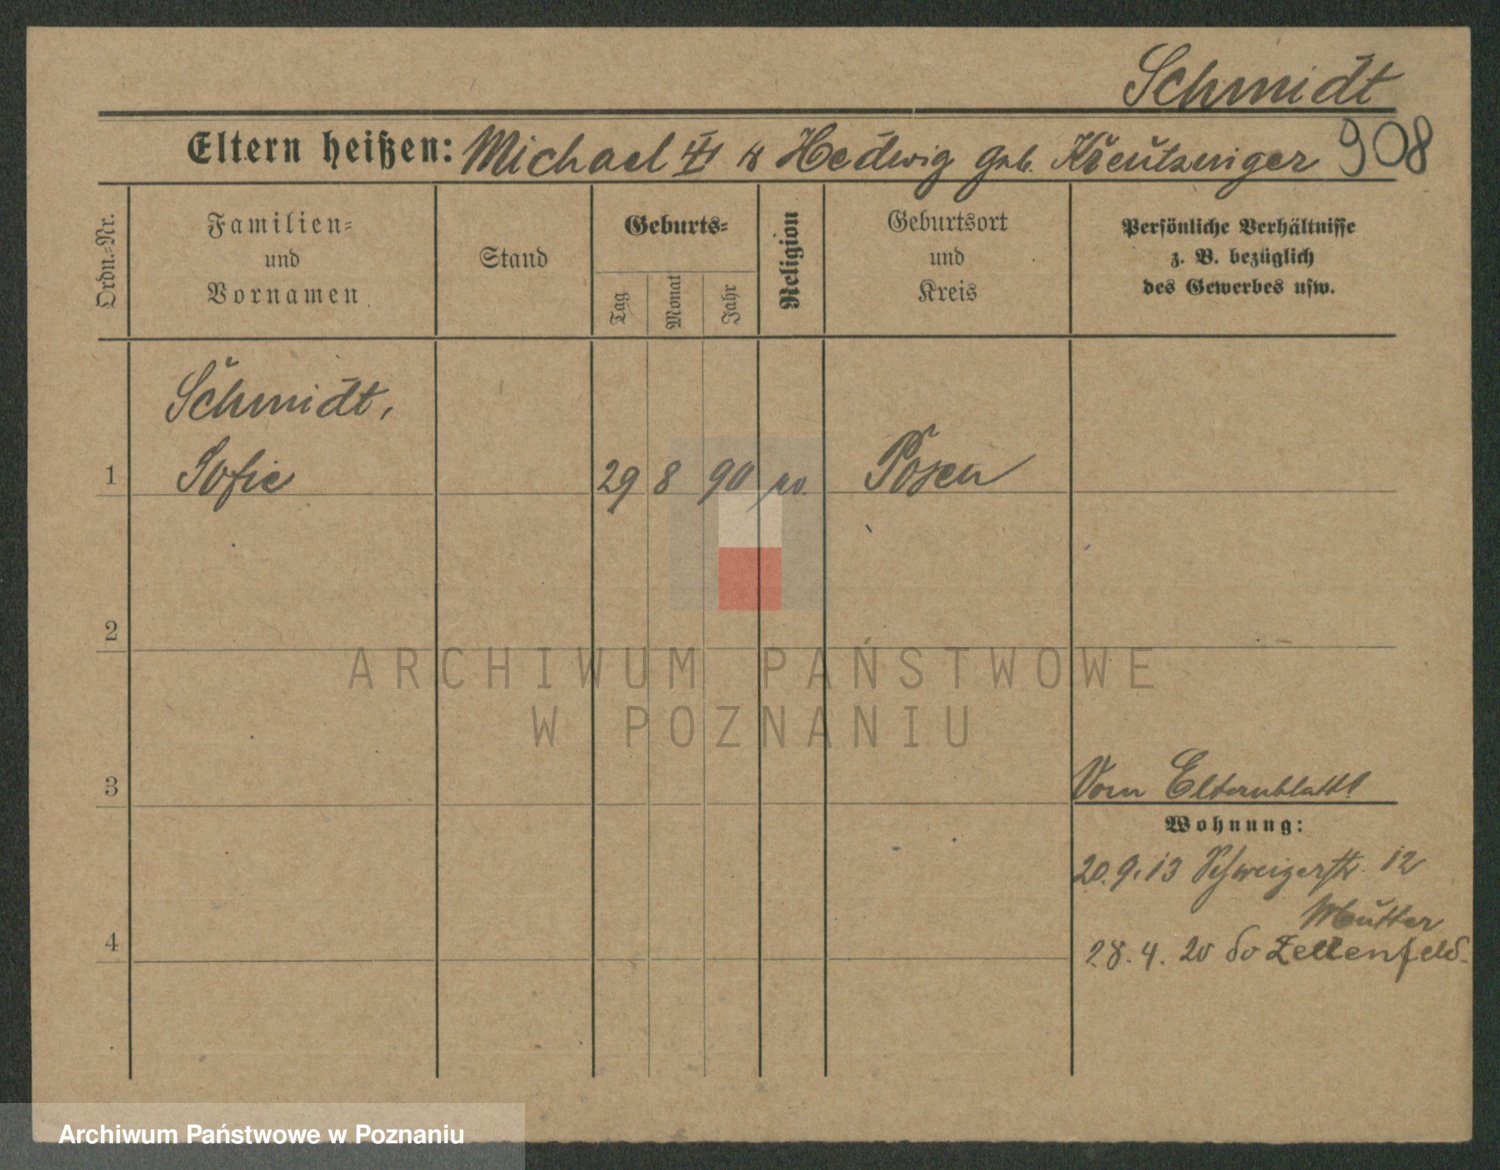 Schmidt
Eltern heißen: Michael u Hedwig geb. Kreutzinger 908
Ordn.-Nr.
Familien-
und
Vornamen
Stand
Geburts-
Tag
Monat
Jahr
Religion
Geburtsort
und
Kreis
Persönliche Verhältnisse
z. B. bezüglich
des Gewerbes usw.
Schmidt,
1 Sofie 29 8 90 Posen
2
3
4
Vom Elternblatt!
Wohnung:
20.9.13 12
Mutter
28.4.20 do Zellenfeld
ARCHIWUM PAŃSTWOWE
W POZNANIU
Archiwum Państwowe w Poznaniu